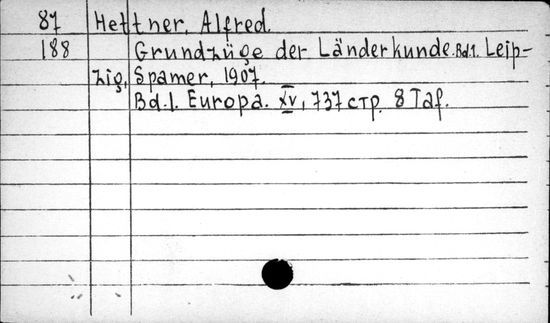 87 Hettner, Alfred.
188 Grundzüge der Länderkunde. Bd.1. Leip-
zig, Spamer, 1907.
Bd.1. Europa. XV, 737 стр. 8 Taf.